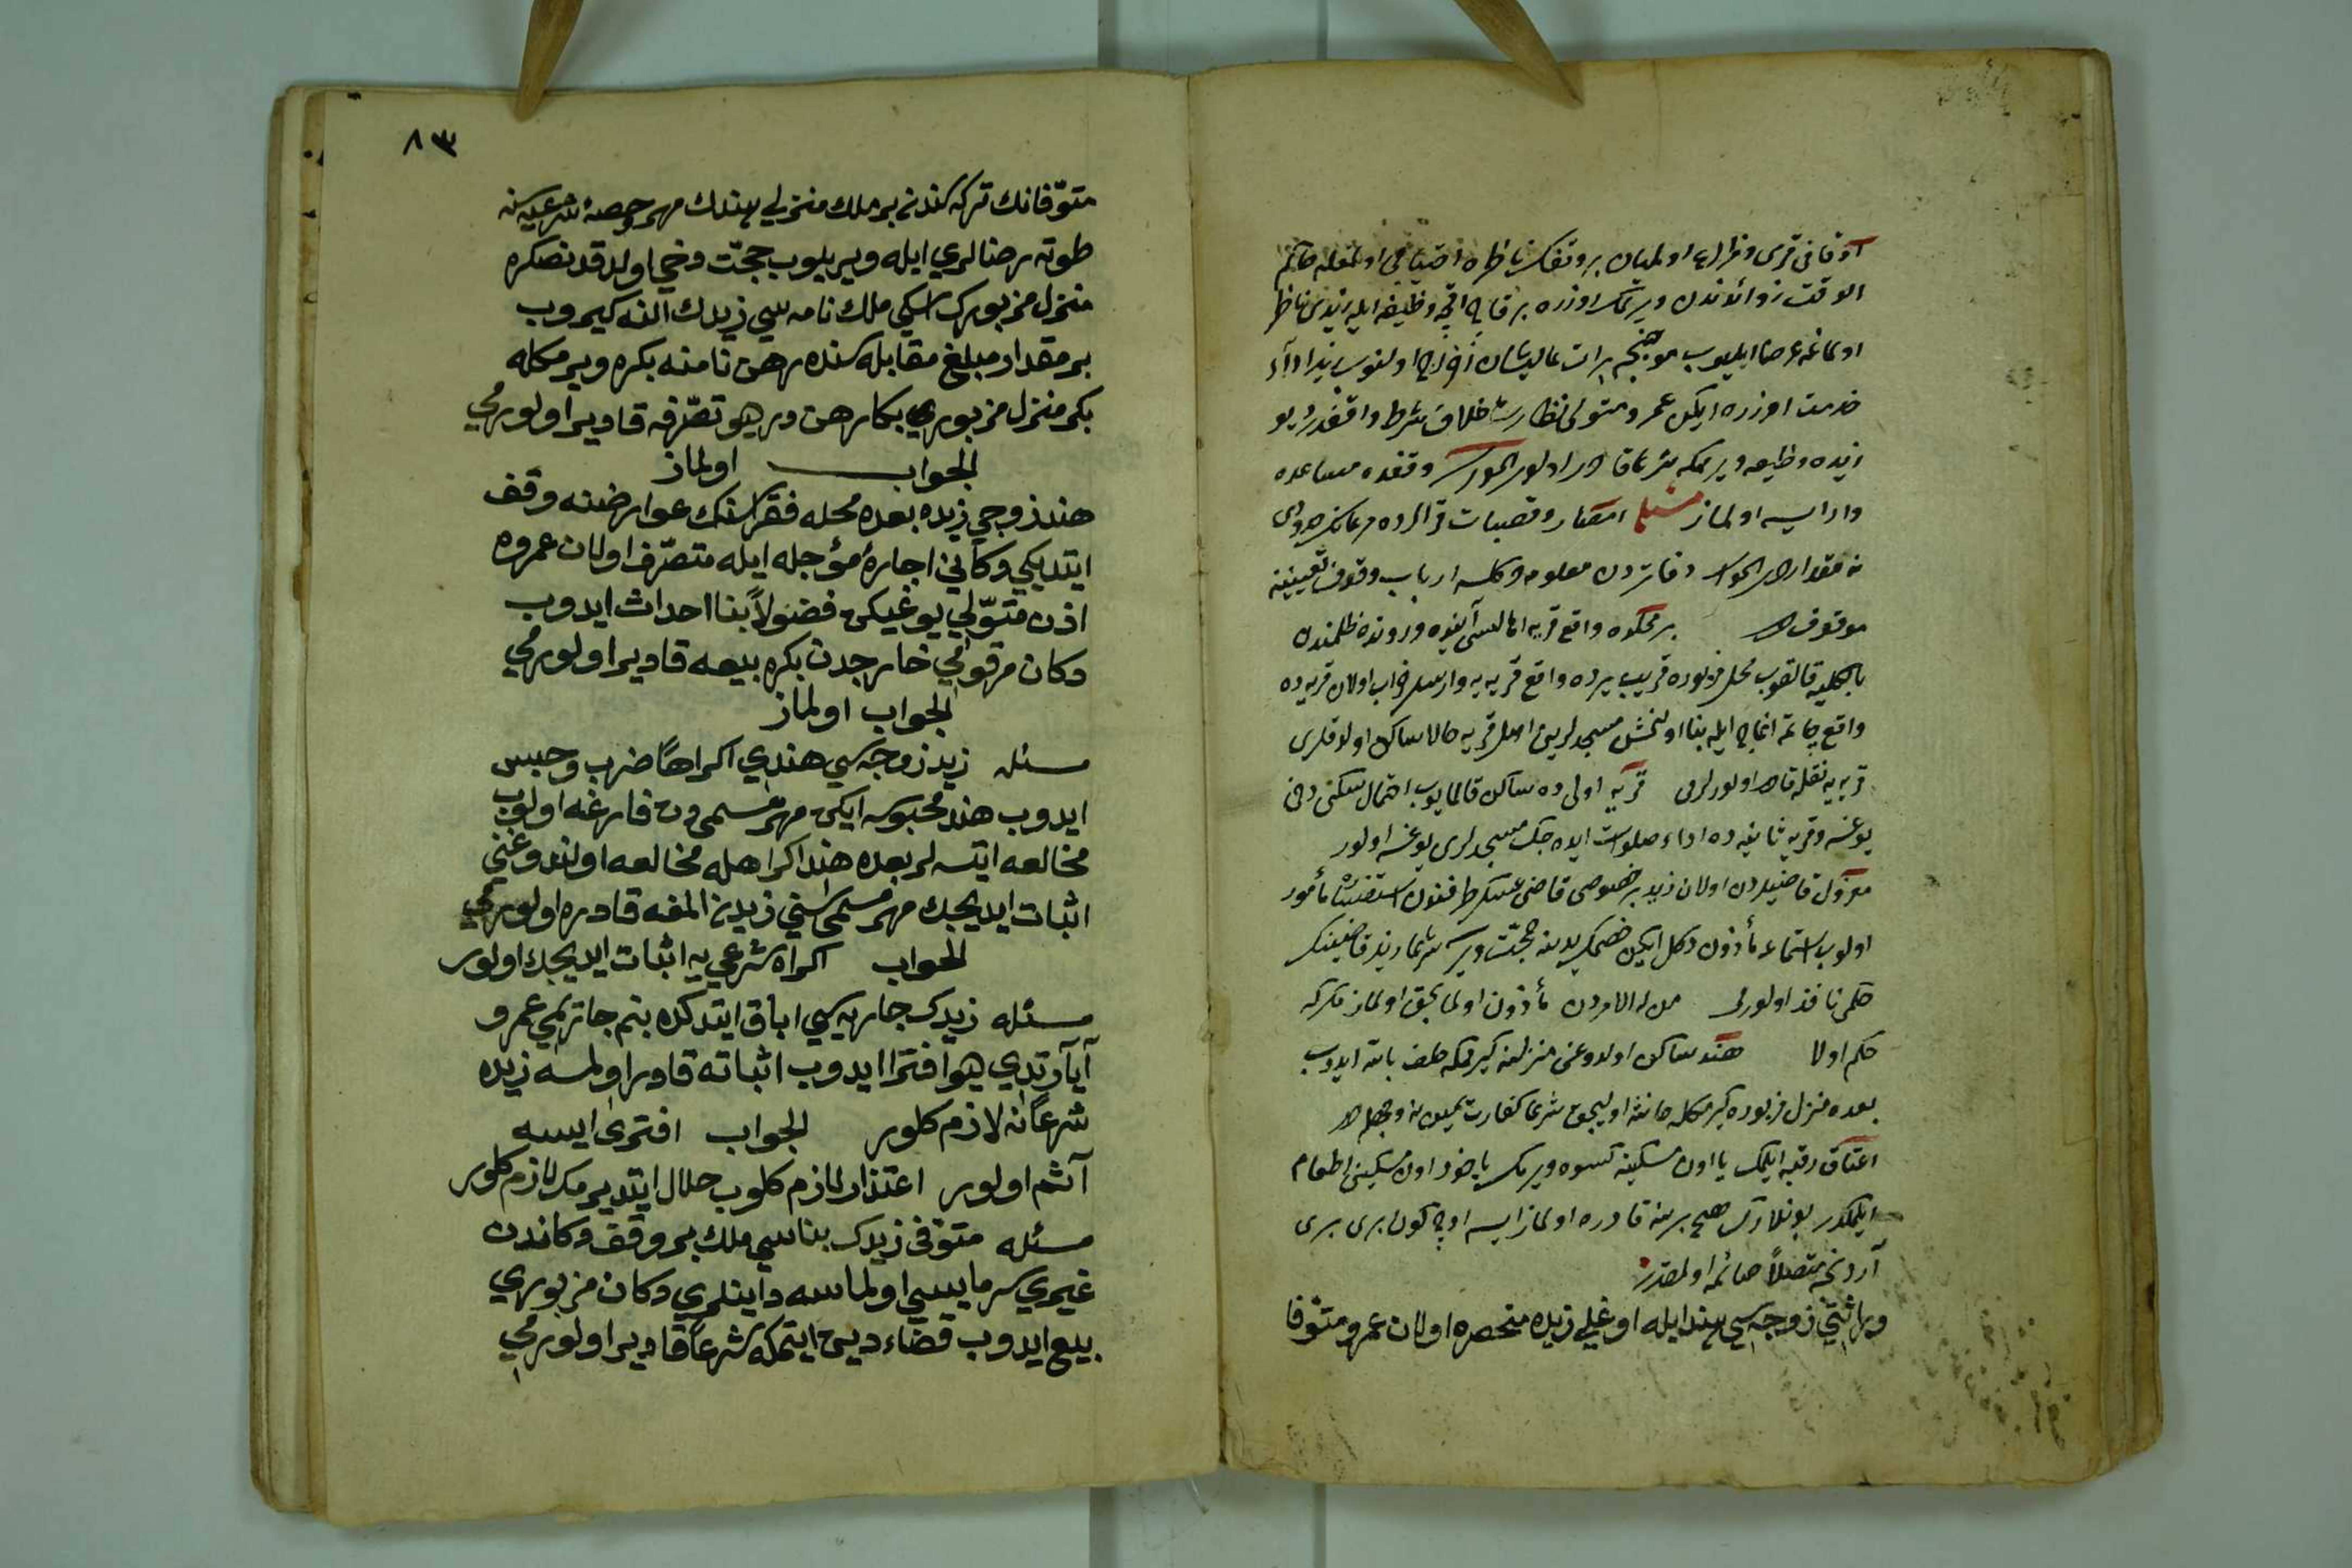 اوقافی قری و مزارع اولمیان بر وقفك ناظره احتیاجی اولمغله حاكم
الوقت زوائدندن ویرلمك اوزره بر قاچ اقچه وظیفه ایله زیدی ناظر
اولماغه عرض ایلیوب موجبنجه برات عالیشان اولوب زید اداء
خدمت اوزره ایكن عمرو متولی نظارت خلاف شرط واقفدر دیو
زیده وظیفه ویرمكه شرعا قادر اولور الجواب وقفده مساعده
وار ایسه اولماز مسئله امصار و قصبات و قراده
نه مقدار در الجواب دفاتردن معلومه وكلسه ارباب وقوف تعیینینه
موقوف در بر محلده واقع قریه اهالیسی آینده و رونده ظلمندن
بالكلیه قالقوب محل مزبوره قریب یرده واقع قریه یه وارسلر خراب اولان قریه ده
واقع ایله بنا اولنمش مسجدلرین اصل قریه حالا ساكن اولدقلری
قریه یه نقله قادر اولورلرمی قریه اولی ده ساكن قالمایوب احتمال سكنی دخی
یوغسه و قریه ثانیه ده اداء صلوات ایده جك مسجدلری یوغسه اولور
معزول قاضیلردن اولان زید بر خصوصی قاضی عسكر طرفندن مأمور
اولوب استماعه مأذون دكل ایكن خصمك یدینه حجت ویرسه شرعا زید قاضینك
حكمی نافذ اولورمی من له الامردن مأذون اولمایجق اولماز
حكم اولا هند ساكن اولدوغی منزلنه كیرمكه حلف بالله ایدوب
بعده منزل مزبوره كیرمكله حانثه اولیجق شرعا كفارت یمین نه وجهله در
اعتاق رقبه ایلمك یا اون مسكینه كسوه ویرمك یاخود اون مسكینی اطعام
ایلمكدر بونلارك هیچ برینه قادره اولماز ایسه اوچ كون بری بری
آردنجه متصلاً صائمه اولمقدر
وراثتی زوجه سی هند ایله اوغلی زیده منحصره اولان عمرو متوفا
٨٣
متوفانك تركه سندن بر ملك منزلی هندك مهر و حصهٔ شرعیه سنه
طوته رضالری ایله ویریلوب حجت دخی اولدقدنصكره
منزل مزبورك اسكی ملك نامه سی زیدك النه كیروب
بر مقدار مبلغ مقابله سنده رهن نامنه بكره ویرمكله
بكر منزل مزبوری بكا رهن در دیو تصرفه قادیر اولورمی
الجواب اولماز
هند زوجی زیده بعده محله فقراسنك عوارضنه وقف
ایتدیكی دكانی اجارهٔ مؤجله ایله متصرف اولان عمروه
اذن متولی یوغیكن فضولاً بنا احداث ایدوب
دكان مرقومی خارجدن بكره بیعه قادیر اولورمی
الجواب اولماز
مسئله زید زوجه سی هندی اكراهاً ضرب و حبس
ایدوب هند محبوسه ایكن مهر مسمی دن فارغه اولوب
مخالعه ایتسه لر بعده هند اكراهله مخالعه اولندوغنی
اثبات ایدیجك مهر مسمی سنی زیدن المغه قادره اولورمی
الجواب اكراه شرعی یه اثبات ایدیجك اولور
مسئله زیدك جاریه سی اباق ایتدكده بنم جاریمی عمرو
آیارتدی دیو افترا ایدوب اثباته قادر اولمسه زیده
شرعاً نه لازم كلور الجواب افتری ایسه
آثم اولور اعتذار لازم كلوب حلال ایتدیرمك لازم كلور
مسئله متوفی زیدك بناسی ملك بر وقف دكاندن
غیری سرمایسی اولماسه داینلری دكان مزبوری
بیع ایدوب قضاء دین ایتمكه شرعاً قادیر اولورمی